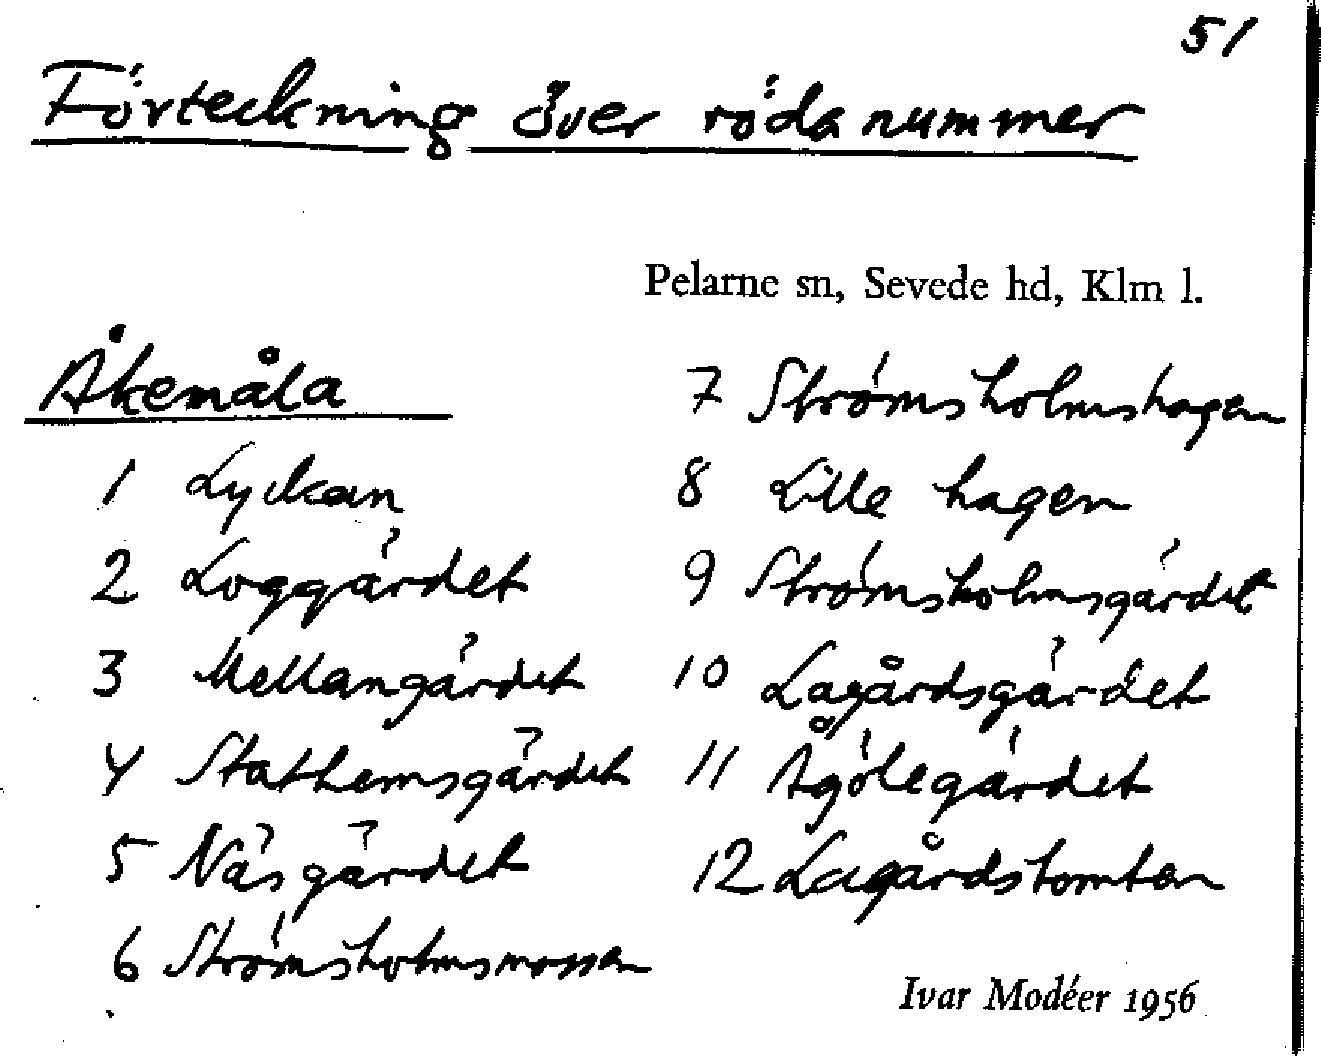 51
Förteckning över röda nummer
Pelarne sn, Sevede hd, Klm l.
Åkemåla
1 Lyckan
2 Loggärdet
3 Mellangärdet
4 Stathemsgärdet
5 Näsgärdet
6 Strömsholmsmossen
7 Strömsholmshagen
8 Lille hagen
9 Strömsholmsgärdet
10 Lagårdsgärdet
11 Ågölegärdet
12 Lagårdstomten
Ivar Modéer 1956